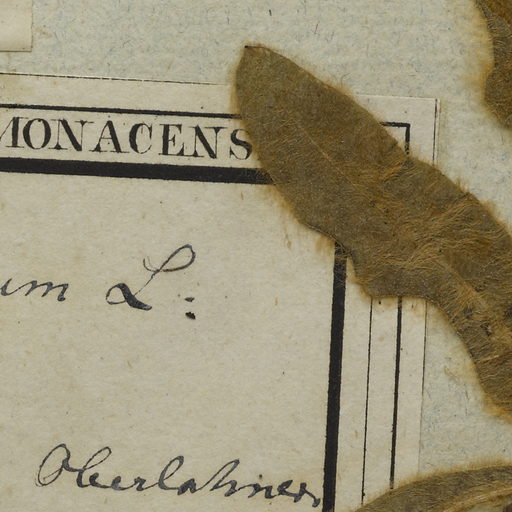 MONACENS
um L:
Oberlahner